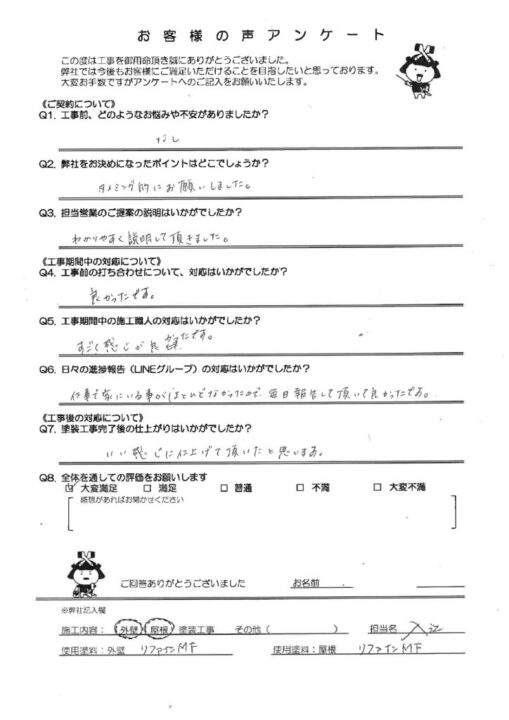 お客様の声アンケート
この度は工事を御用命頂き誠にありがとうございました。
弊社では今後もお客様にご満足いただけることを目指したいと思っております。
大変お手数ですがアンケートへのご記入をお願いいたします。
《ご契約について》
Q1. 工事前、どのようなお悩みや不安がありましたか？
なし
Q2. 弊社をお決めになったポイントはどこでしょうか？
タイミング的にお願いしました。
Q3. 担当営業のご提案の説明はいかがでしたか？
わかりやすく説明して頂きました。
《工事期間中の対応について》
Q4. 工事前の打ち合わせについて、対応はいかがでしたか？
良かったです。
Q5. 工事期間中の施工職人の対応はいかがでしたか？
すごく感じが良かったです。
Q6. 日々の進捗報告（LINEグループ）の対応はいかがでしたか？
仕事で家にいる事がほとんどなかったので、毎日報告して頂いて良かったです。
《工事後の対応について》
Q7. 塗装工事完了後の仕上がりはいかがでしたか？
いい感じに仕上げて頂いたと思います。
Q8. 全体を通しての評価をお願いします
☑ 大変満足 □ 満足 □ 普通 □ 不満 □ 大変不満
感想があればお聞かせください
ご回答ありがとうございました お名前
※弊社記入欄
施工内容： 外壁 屋根 塗装工事 その他（ ） 担当名 入江
使用塗料：外壁 リファインMF 使用塗料：屋根 リファインMF